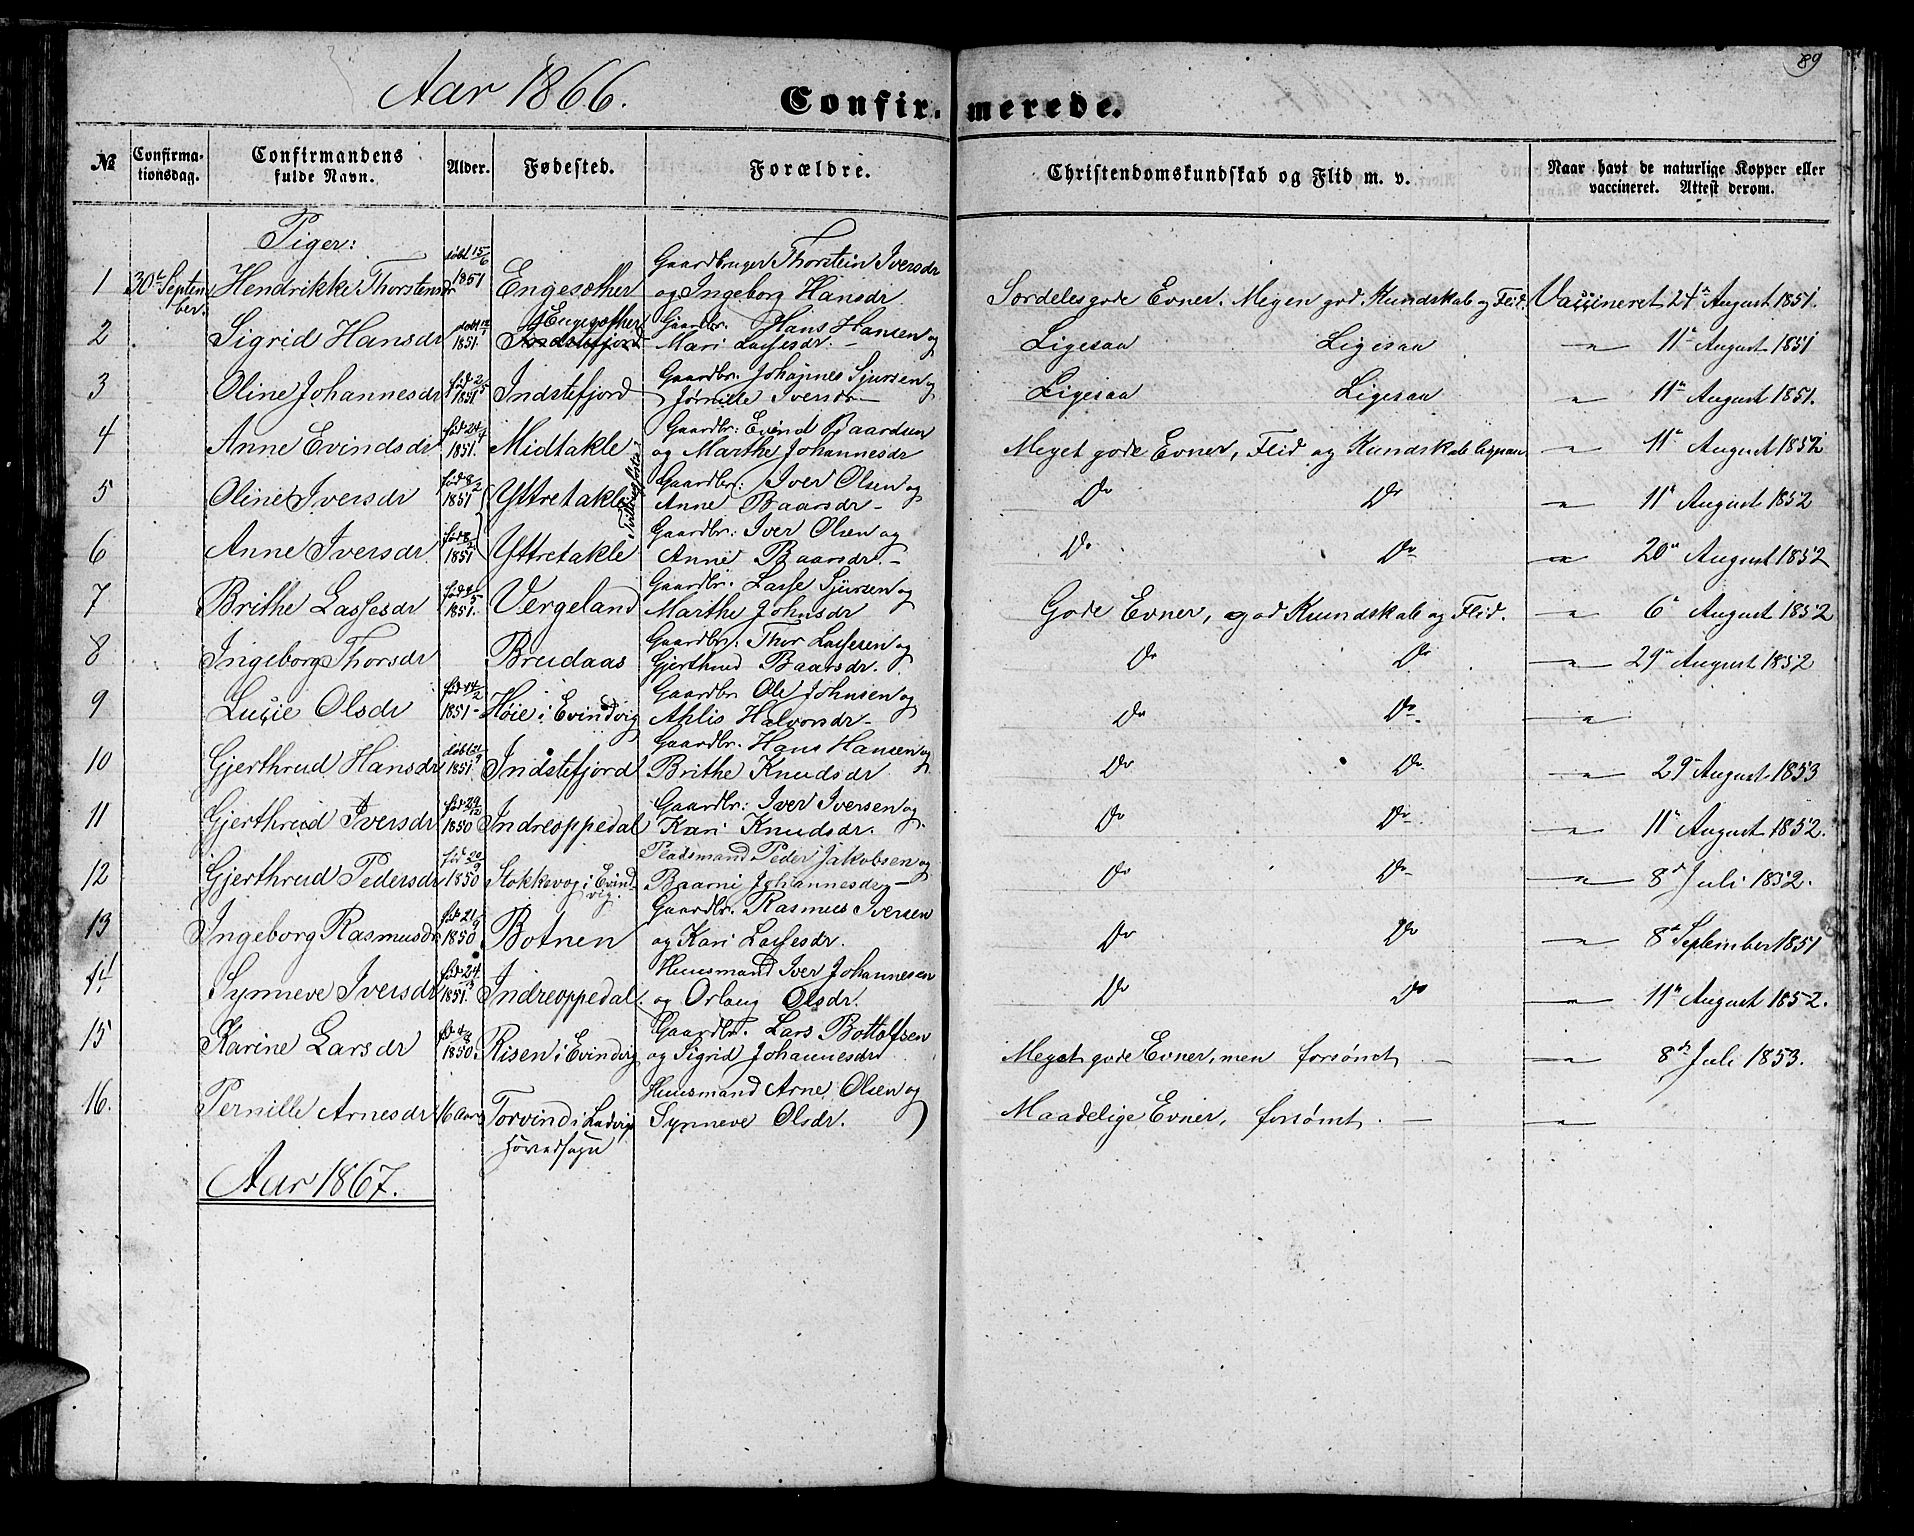 Aar 1866. Confirmerede. 89
№ Confirmationsdag. Confirmandens fulde Navn. Alder. Fødested. Forældre. Christendomskundskab og Flid m. v. Naar havt de naturlige Kopper eller vaccineret. Attest derom.
Piger:
1 30te September. Hendrikke Thorstensdr døbt 15/6 1851 Engesæther Gaardbruger Thorstein Iversdr og Ingeborg Hansdr. Særdeles gode Evner. Megen god Kundskab og Flid. Vaccineret 24de August 1851.
2 Sigrid Hansdr 1851. Engesæther Indstefjord Gaardbr. Hans Hansen og Mari Lassesdr. Ligesaa Ligesaa 11te August 1851
3 Oline Johannesdr 1851 Indstefjord Gaardbr. Johannes Sjursen og Iversdr Ligesaa Ligesaa 11te August 1851.
4 Anne Evindsdr fød 24/4 1851. Midtakle Gaardbr: Evind Baardsen og Marthe Johannesdr Meget gode Evner, Flid og Kundskab ligesaa 11te August 1852
5 Oline Iversdr fød 8/2 1851 Yttretakle Tvillingsøstre Gaardbr: Iver Olsen og Anne Baarsdr Do Do 11te August 1852
6 Anne Iversdr fød 8/2 1851 Yttretakle Gaardbr: Iver Olsen og Anne Baarsdr. Do Do 20de August 1852
7 Brithe Lassesdr fød 4/5 1851. Vergeland Gaardbr. Lasse Sjursen og Marthe Johnsdr Gode Evner, god Kundskab og Flid. 6te August 1852
8 Ingeborg Thorsdr Brudaas Gaardbr. Thor Lassesen og Gjerthrud Baarsdr. Do Do 29de August 1852
9 Lucie Olsdr fød 14/2 1851 Høie i Evindvig Gaardbr Ole Johnsen og Ahlis Halvorsdr Do Do
10 Gjerthrud Hansdr 1851 Indstefjord Gaardbr. Hans Hansen og Brithe Knudsdr Do Do 29de August 1853
11 Gjerthrud Iversdr fød 29/12 1850 Indreoppedal Gaardbr: Iver Iversen og Kari Knudsdr. Do Do 11te August 1852.
12 Gjerthrud Pedersdr fød 20/9 1850 Stokkevog i Evindvig. Pladsmand Peder Jakobsen og Baarni Johannesdr Do Do 8de Juli 1852.
13 Ingeborg Rasmusdr fød 21/9 1850 Botnen Gaardbr. Rasmus Iversen og Kari Lassesdr. Do Do 8de September 1851
14 Synneve Iversdr 1851. Indreoppedal Huusmand Iver Johannesen og Orlaug Olsdr. Do Do 11te August 1852.
15 Karine Larsdr 1850. Risen i Evindvig Gaardbr. Lars Bottolfsen og Sigrid Johannesdr Meget gode Evner, men forsømt 8de Juli 1853.
16. Pernille Arnesdr 16 Aar Torvind i Ladvigs Hovedsogn Huusmand Arne Olsen og Synneve Olsdr. Maadelige Evner, forsømt.
Aar 1867.